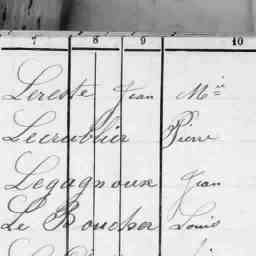 7 8 9 10
Lereste Jean Mie
Lecrublier Pierre
Legagnoux Jean
Le Boucher Louis